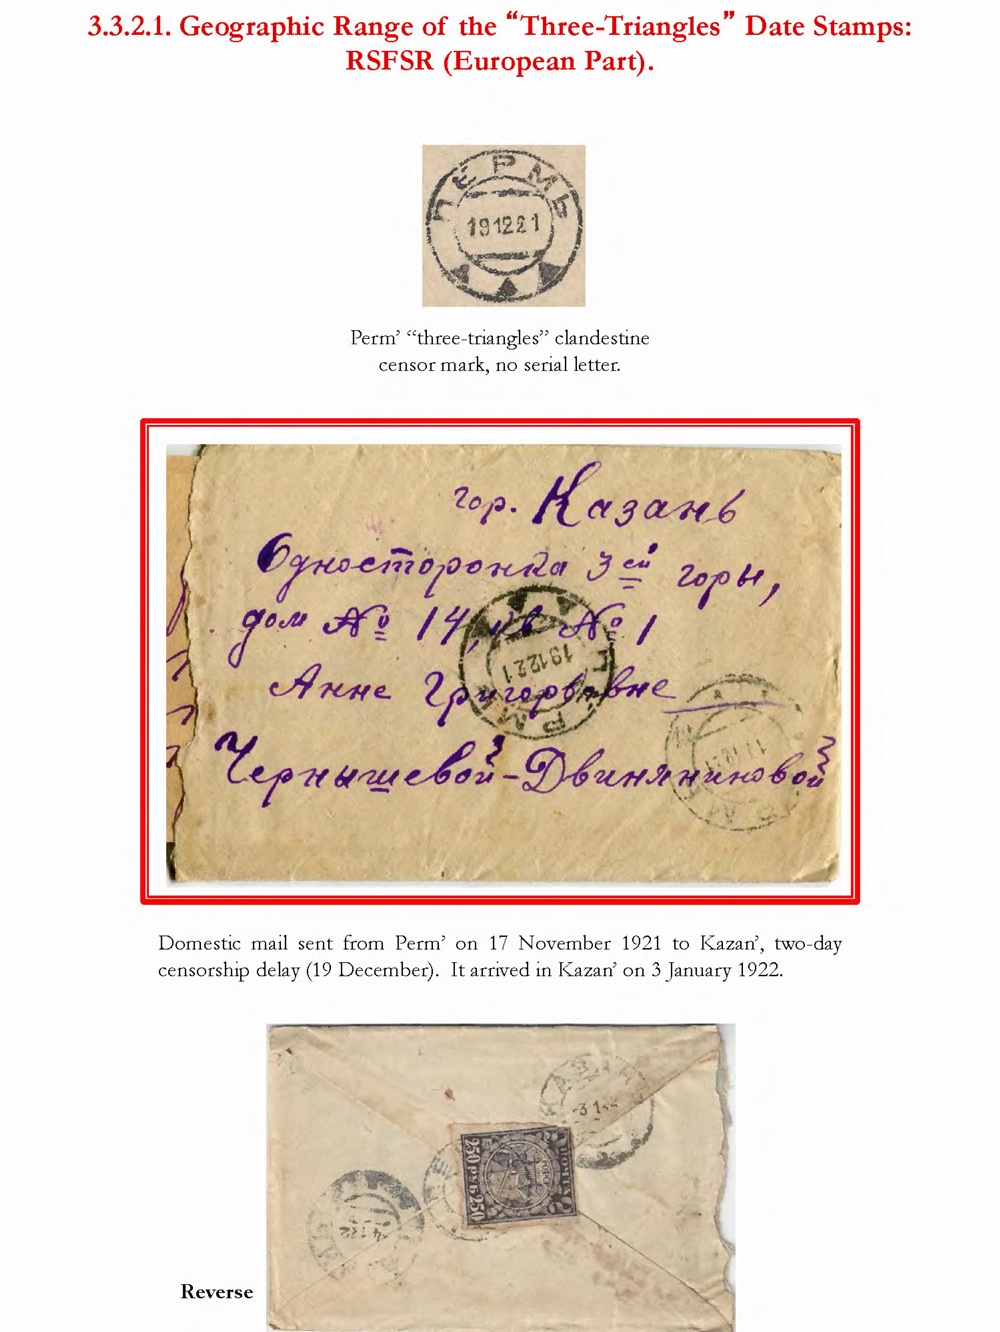 3.3.2.1. Geographic Range of the “Three-Triangles” Date Stamps:
RSFSR (European Part).
ПЕРМЬ
191221
Perm’ “three-triangles” clandestine
censor mark, no serial letter.
гор. Казань
Односторонка 3ей горы,
дом № 14, кв № 1
Анне Григорьевне
Чернышевой-Двиняниновой
191221
Domestic mail sent from Perm’ on 17 November 1921 to Kazan’, two-day
censorship delay (19 December). It arrived in Kazan’ on 3 January 1922.
250 РУБ. 250
Reverse